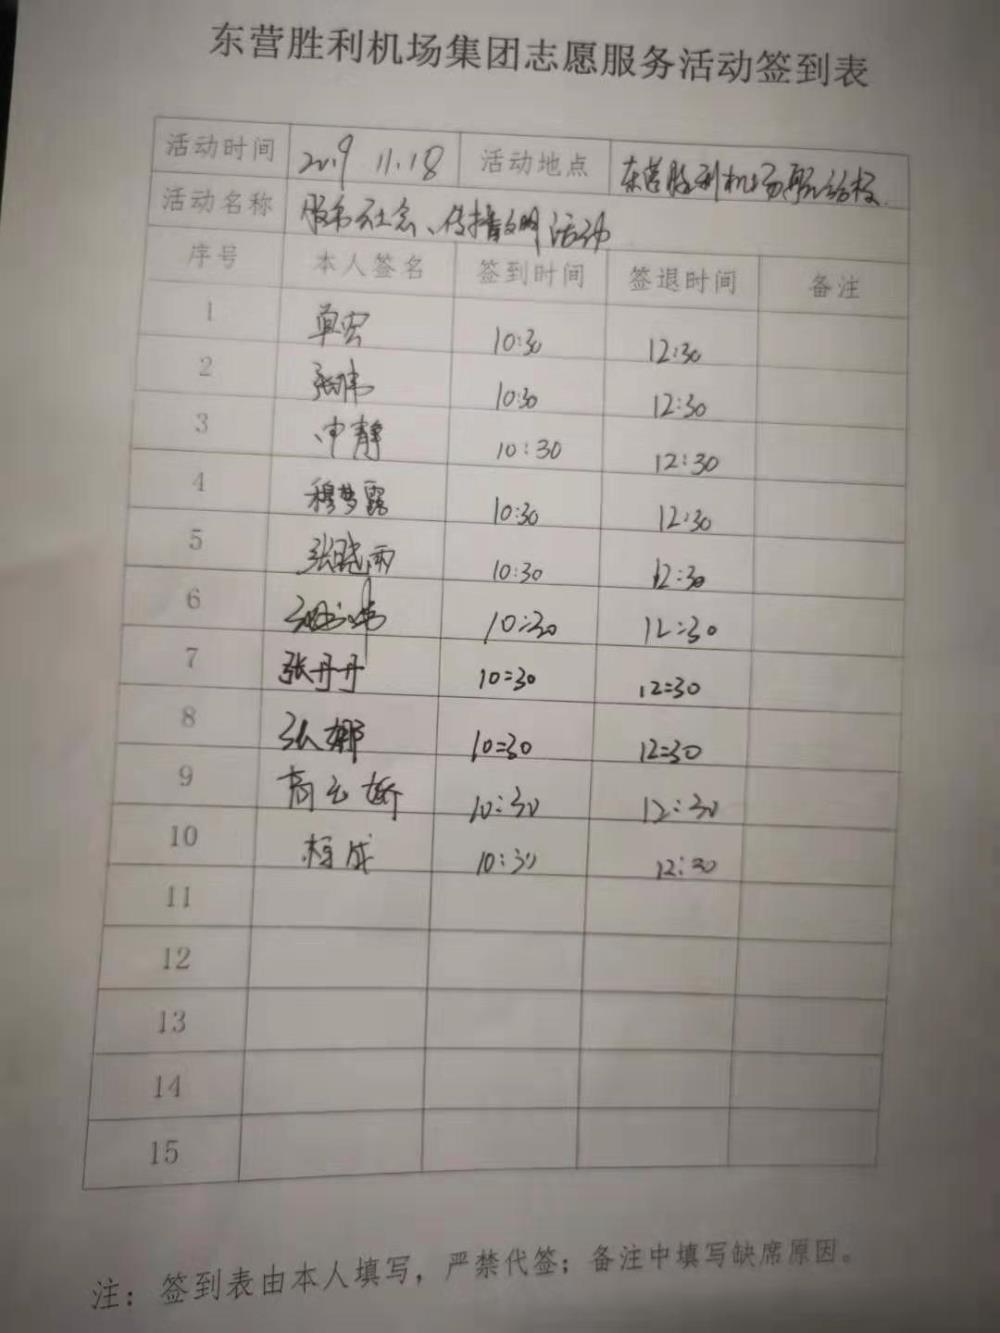 东营胜利机场集团志愿服务活动签到表
活动时间 2019 11.18 活动地点 东营胜利机场
活动名称 服务社会、传播文明活动
序号 本人签名 签到时间 签退时间 备注
1 10:30 12:30
2 张伟 10:30 12:30
3 申静 10:30 12:30
4 穆梦露 10:30 12:30
5 张晓雨 10:30 12:30
6 10:30 12:30
7 张丹丹 10:30 12:30
8 张娜 10:30 12:30
9 10:30 12:30
10 10:30 12:30
11
12
13
14
15
注：签到表由本人填写，严禁代签；备注中填写缺席原因。